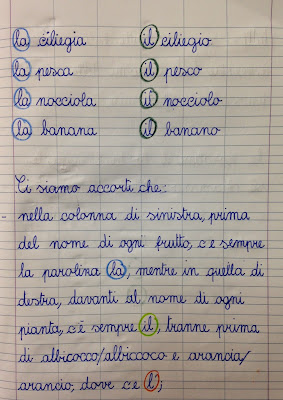 la ciliegia il ciliegio
la pesca il pesco
la nocciola il nocciolo
la banana il banano
Ci siamo accorti che:
nella colonna di sinistra, prima
del nome di ogni frutto, c'è sempre
la parolina la, mentre in quella di
destra, davanti al nome di ogni
pianta, c'è sempre il, tranne prima
di albicocco/albiccoco e arancia/
arancio, dove c'è l';